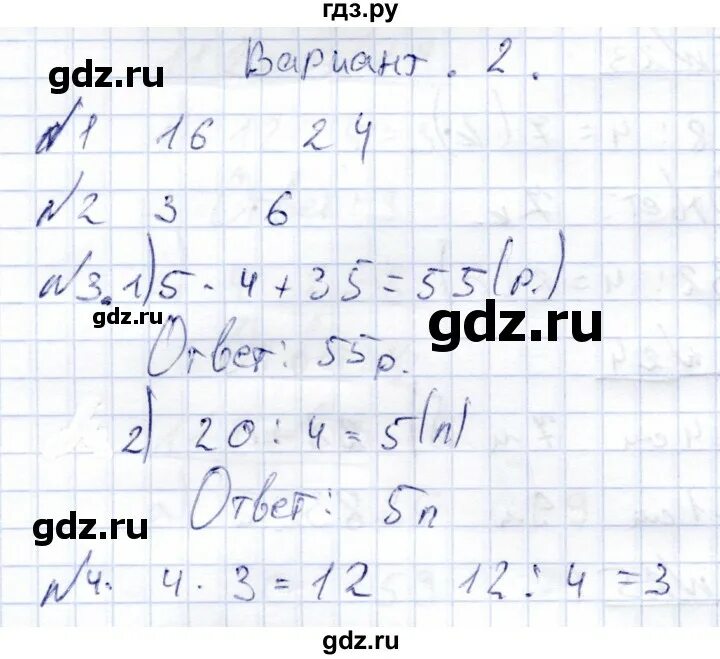 гдз.ру
Вариант. 2.
gdz.ru
№1 16 24
№2 3 6
№3. 1) 5 · 4 + 35 = 55 (р.)
gdz.ru
gdz.ru
Ответ: 55 р.
2) 20 : 4 = 5 (п)
Ответ: 5 п
gdz.ru
№4. 4 · 3 = 12 12 : 4 = 3
gdz.ru